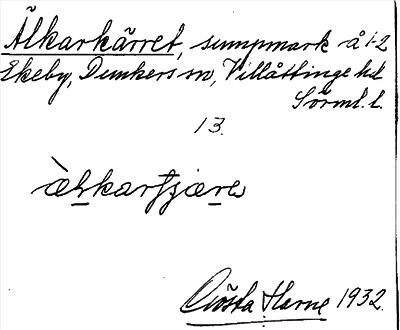 Älkarkärret, sumpmark å 1-2
Ekeby, Dunkers sn, Villåttinge hd
Sörml. l.
13.
Gösta Herne 1932.